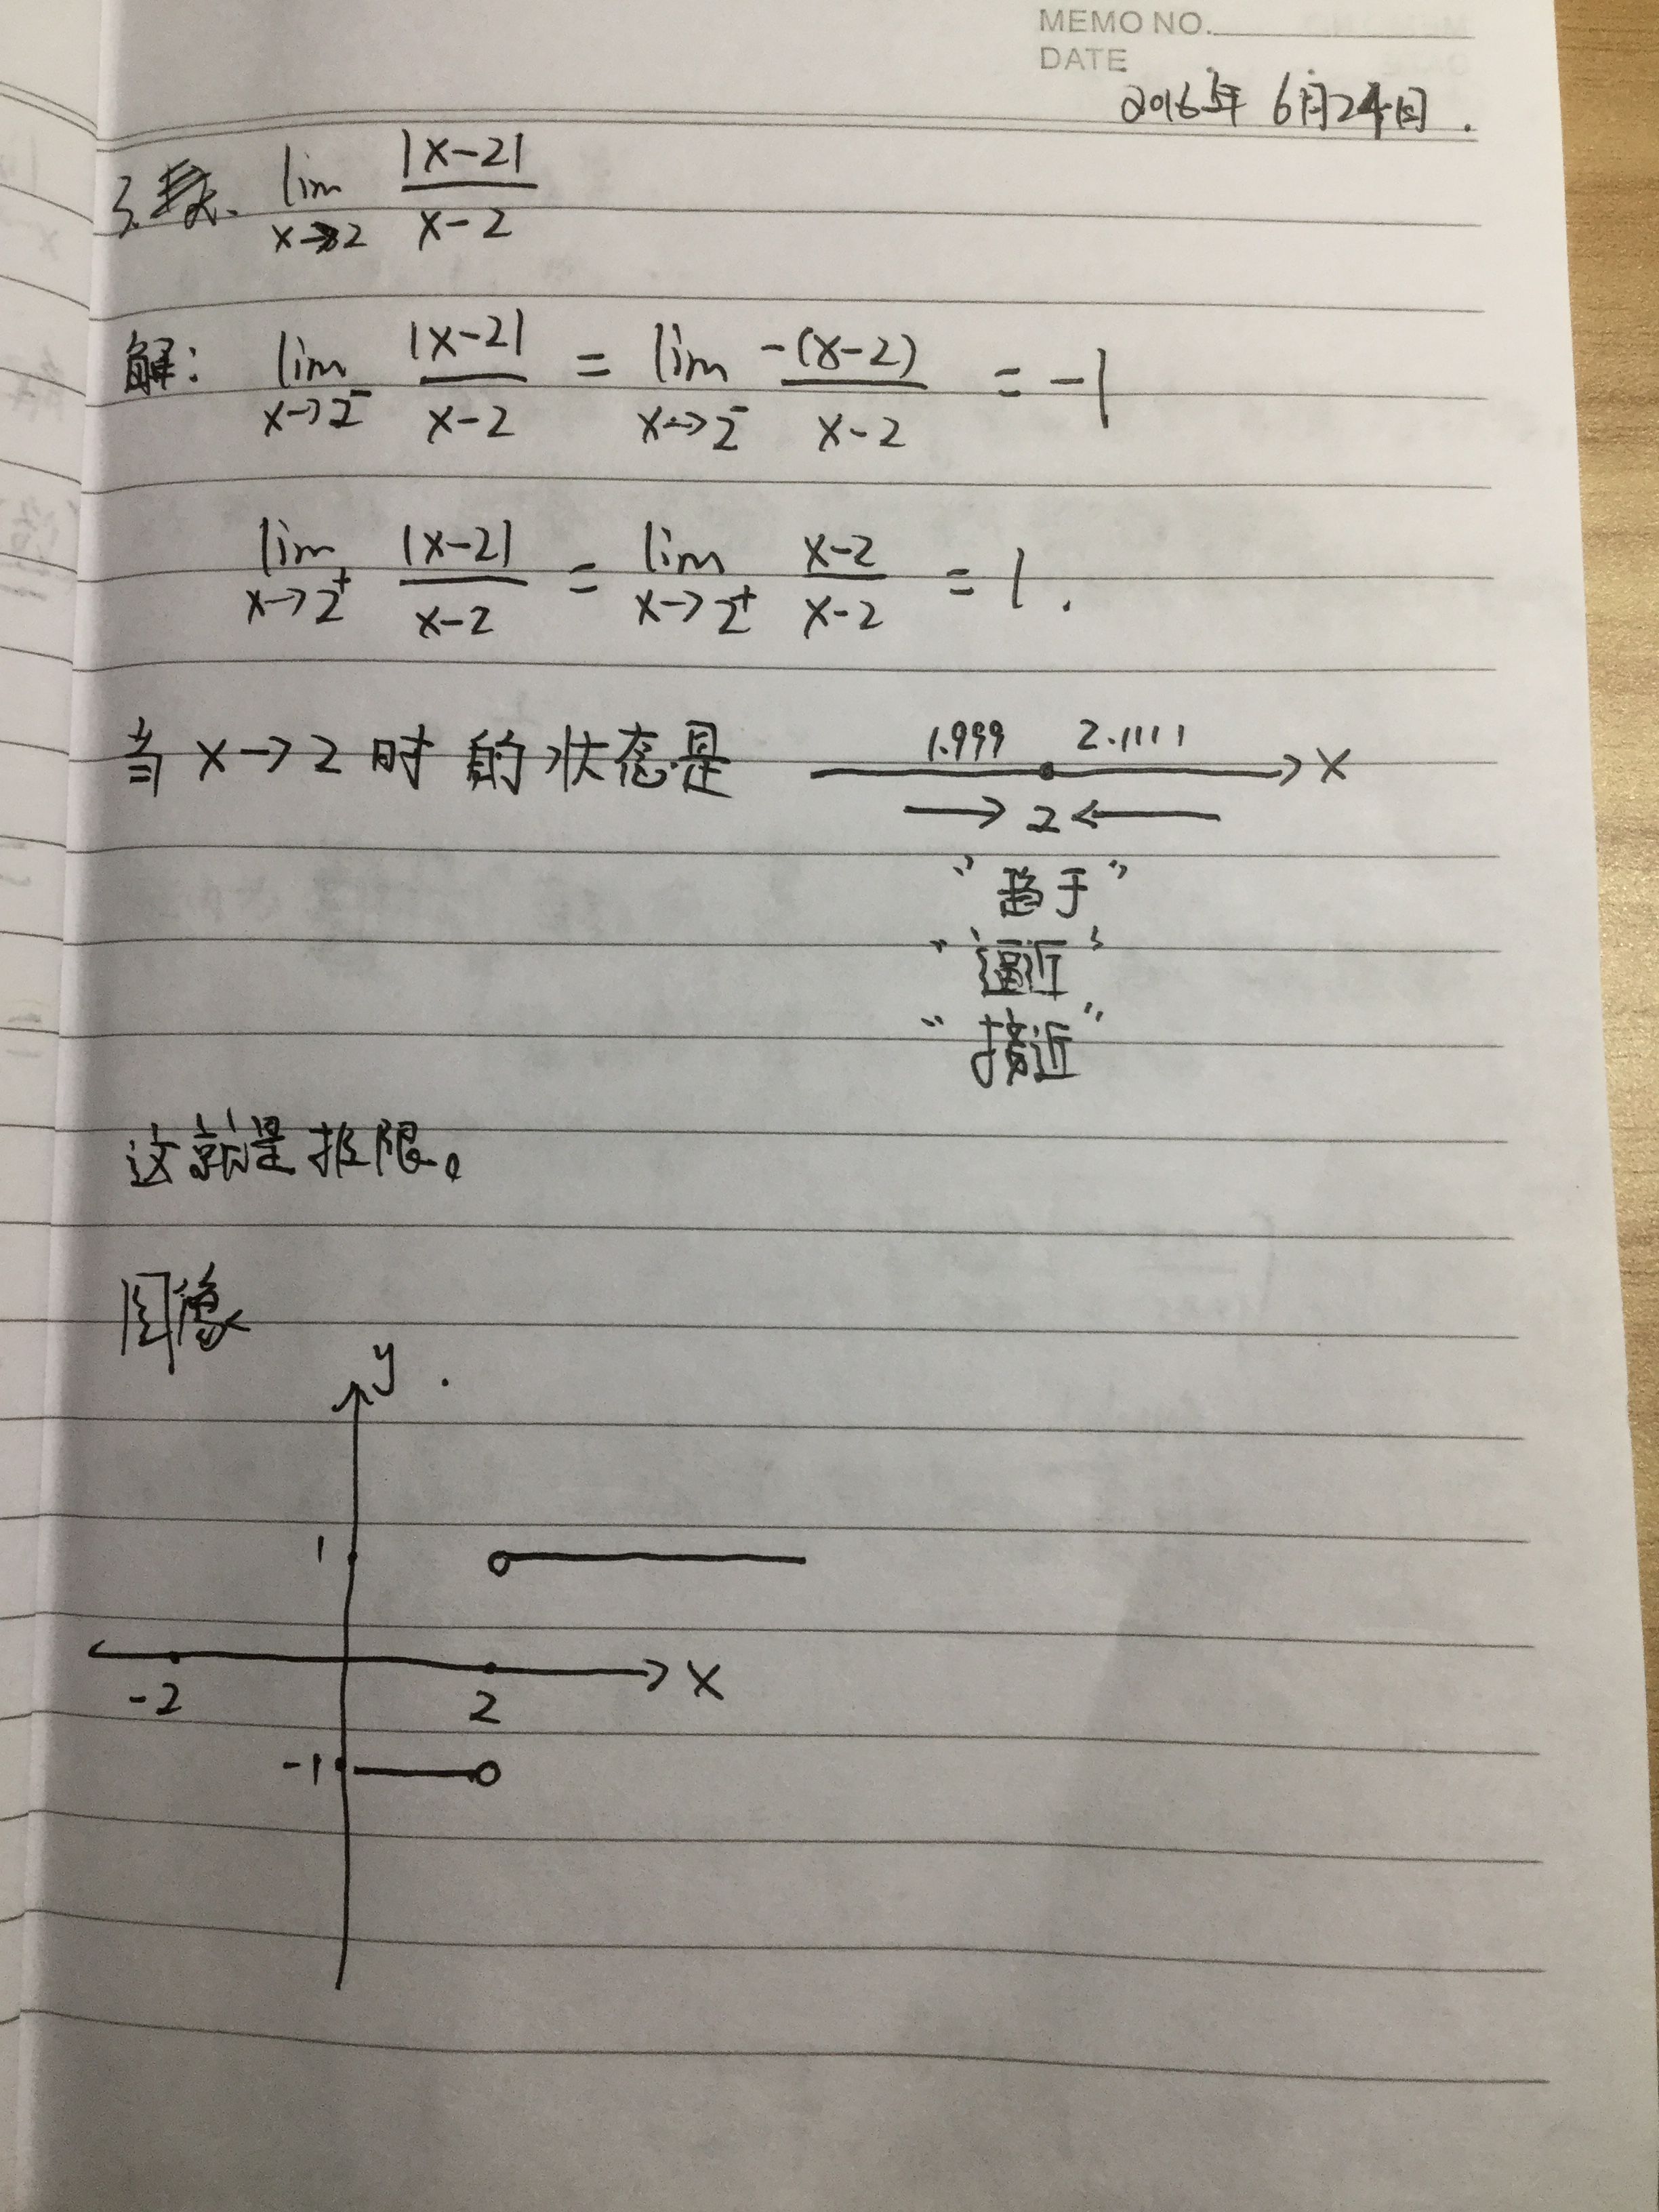 MEMO NO.
DATE
2016年 6月24日.
3. 求. lim x→2 |x-2| / x-2
解: lim x→2⁻ |x-2| / x-2 = lim x→2⁻ -(x-2) / x-2 = -1
lim x→2⁺ |x-2| / x-2 = lim x→2⁺ x-2 / x-2 = 1.
当 x→2 时 的 状态是
1.999 2.1111
x
→ 2 ←
"趋于"
"逼近"
"接近"
这就是极限。
图像
y.
1
x
-2 2
-1